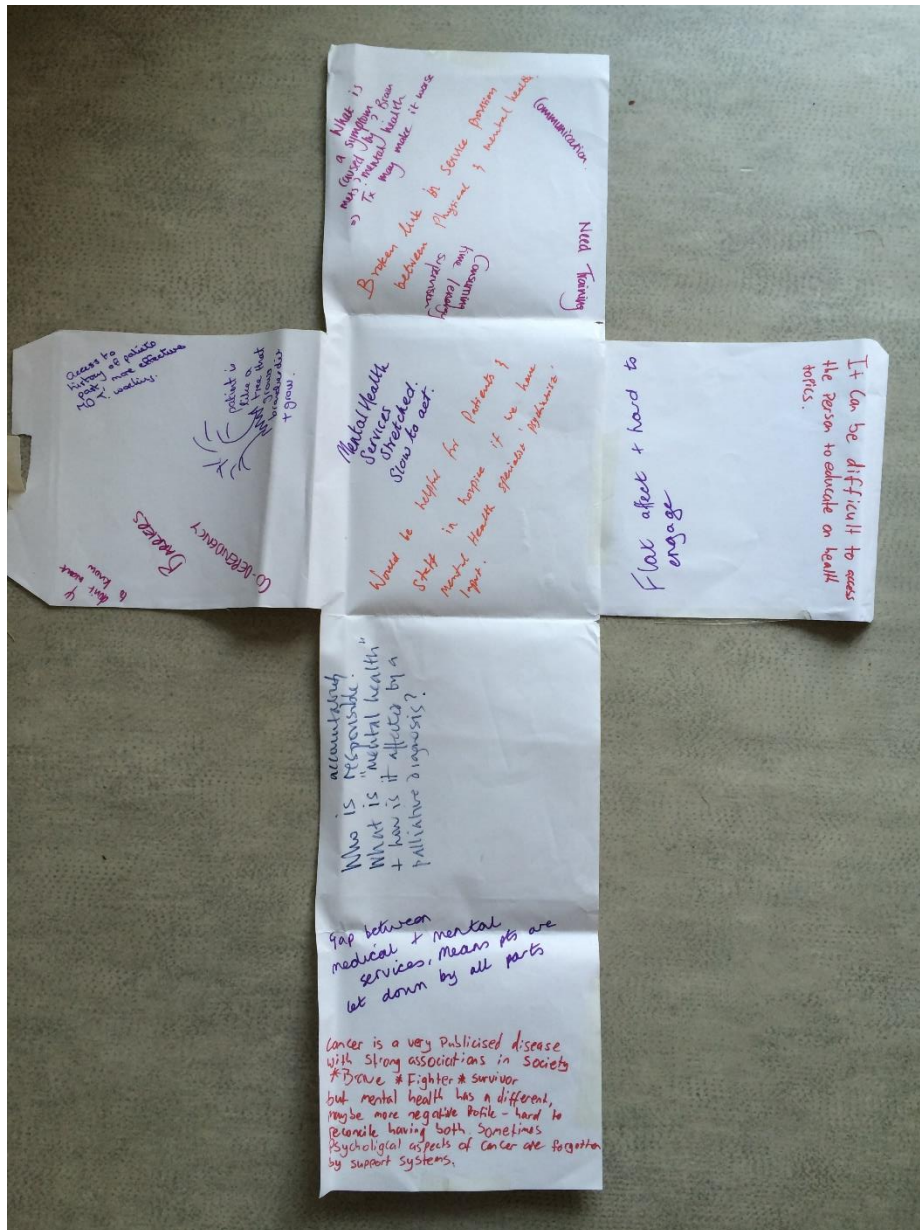 What is
a symptom
caused by? Brain
mets, mental health
Tx may make it worse
Broken link in service provision
between Physical & mental health.
Communication.
Need Training
Consuming
time length
Access to
history of patients
path more effective
working.
patient is
like a
tree that
grows
+ grow.
BARRIERS
CO-DEPENDENCY
don't want
to know
Mental Health
Services
Stretched.
Slow to act.
Would be helpful for Patients &
Staff in hospice if we have
Mental Health specialist
Flat affect + hard to
engage
It can be difficult to access
the person to educate on health
topics.
accountability
Who is responsible.
What is "mental health"
+ how is it affected by a
palliative diagnosis?
Gap between
medical + mental
services, means pts are
let down by all parts
Cancer is a very Publicised disease
with strong associations in society
*Brave *Fighter * survivor
but mental health has a different,
maybe more negative Profile - hard to
reconcile having both. Sometimes
aspects of cancer are forgotten
by support systems.